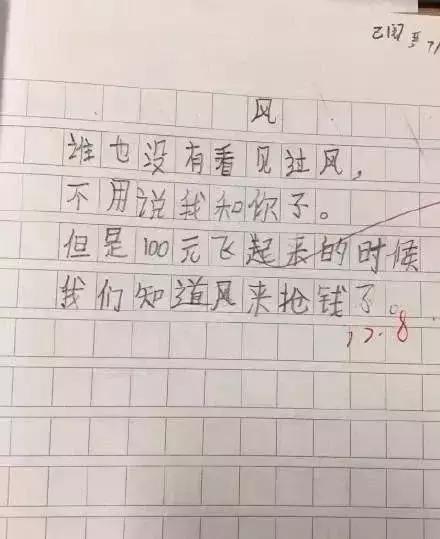 已阅
风
谁也没有看见过风，
不用说我和你了。
但是100元飞起来的时候
我们知道风来抢钱了。